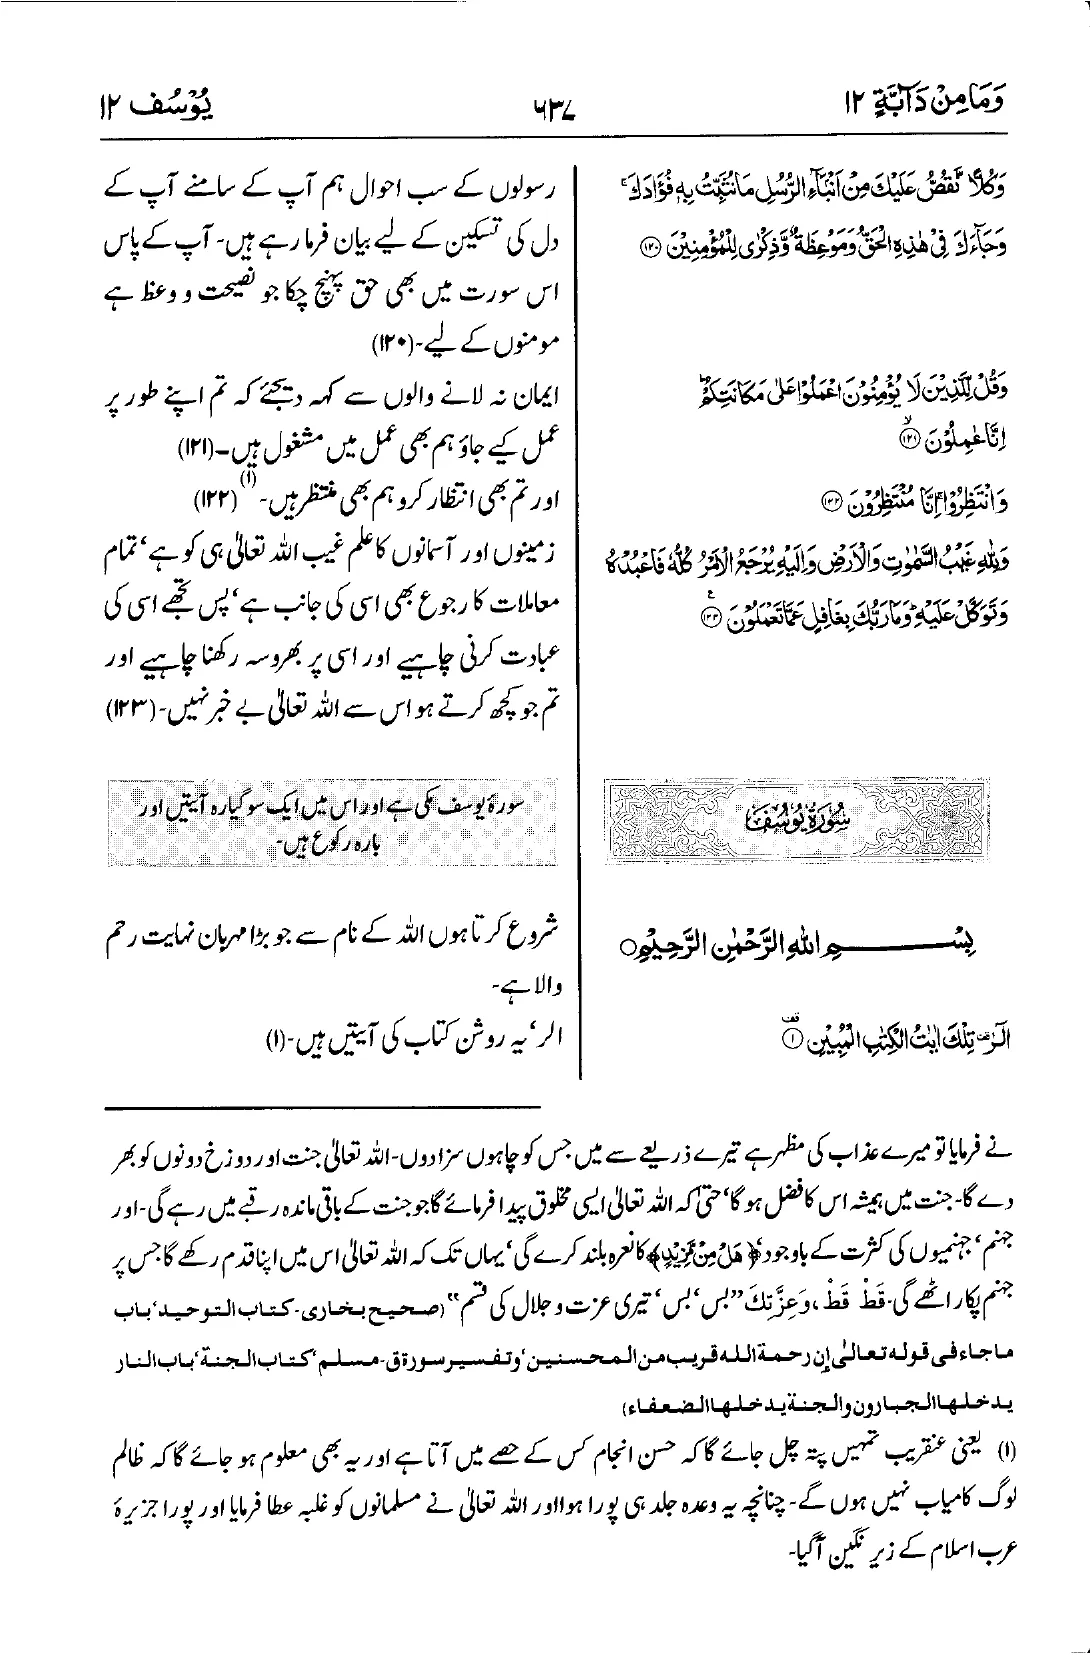 وَمَا مِنْ دَآبَّةٍ ۱۲
۶۳۷
يُوْسُف ۱۲
وَكُلًّا نَّقُصُّ عَلَيْكَ مِنْ اَنْۢبَآءِ الرُّسُلِ مَا نُثَبِّتُ بِهٖ فُؤَادَكَ ۚ
وَجَآءَكَ فِيْ هٰذِهِ الْحَقُّ وَمَوْعِظَةٌ وَّذِكْرٰى لِلْمُؤْمِنِيْنَ ۝۱۲۰
وَقُلْ لِّلَّذِيْنَ لَا يُؤْمِنُوْنَ اعْمَلُوْا عَلٰى مَكَانَتِكُمْ ۭ
اِنَّا عٰمِلُوْنَ ۝۱۲۱ۙ
وَانْتَظِرُوْا ۚ اِنَّا مُنْتَظِرُوْنَ ۝۱۲۲
وَلِلّٰهِ غَيْبُ السَّمٰوٰتِ وَالْاَرْضِ وَاِلَيْهِ يُرْجَعُ الْاَمْرُ كُلُّهٗ فَاعْبُدْهُ
وَتَوَكَّلْ عَلَيْهِ ۭ وَمَا رَبُّكَ بِغَافِلٍ عَمَّا تَعْمَلُوْنَ ۝۱۲۳ۧ
رسولوں کے سب احوال ہم آپ کے سامنے آپ کے
دل کی تسکین کے لیے بیان فرما رہے ہیں۔ آپ کے پاس
اس سورت میں بھی حق پہنچ چکا جو نصیحت و وعظ ہے
مومنوں کے لیے۔ (۱۲۰)
ایمان نہ لانے والوں سے کہہ دیجئے کہ تم اپنے طور پر
عمل کیے جاؤ ہم بھی عمل میں مشغول ہیں۔ (۱۲۱)
اور تم بھی انتظار کرو ہم بھی منتظر ہیں۔ (۱) (۱۲۲)
زمینوں اور آسمانوں کا علم غیب اللہ تعالیٰ ہی کو ہے‘ تمام
معاملات کا رجوع بھی اسی کی جانب ہے‘ پس تجھے اسی کی
عبادت کرنی چاہیے اور اسی پر بھروسہ رکھنا چاہیے اور
تم جو کچھ کرتے ہو اس سے اللہ تعالیٰ بے خبر نہیں۔ (۱۲۳)
سُوْرَةُ يُوْسُفَ
سورۂ یوسف مکی ہے اور اس میں ایک سو گیارہ آیتیں اور
بارہ رکوع ہیں۔
بِسْمِ اللّٰهِ الرَّحْمٰنِ الرَّحِيْمِ ۝
الٓرٰ ۣ تِلْكَ اٰيٰتُ الْكِتٰبِ الْمُبِيْنِ ۝۱ قف
شروع کرتا ہوں اللہ کے نام سے جو بڑا مہربان نہایت رحم
والا ہے۔
الر‘ یہ روشن کتاب کی آیتیں ہیں۔ (۱)
نے فرمایا تو میرے عذاب کی مظہر ہے تیرے ذریعے سے میں جس کو چاہوں سزا دوں۔ اللہ تعالیٰ جنت اور دوزخ دونوں کو بھر
دے گا۔ جنت میں ہمیشہ اس کا فضل ہو گا‘ حتیٰ کہ اللہ تعالیٰ ایسی مخلوق پیدا فرمائے گا جو جنت کے باقی ماندہ رقبے میں رہے گی۔ اور
جہنم‘ جہنمیوں کی کثرت کے باوجود‘ ﴿ هَلْ مِنْ مَّزِيْدٍ﴾ کا نعرہ بلند کرے گی‘ یہاں تک کہ اللہ تعالیٰ اس میں اپنا قدم رکھے گا جس پر
جہنم پکار اٹھے گی۔ قَطْ قَطْ، وَعِزَّتِكَ ”بس‘ بس‘ تیری عزت و جلال کی قسم“ (صحیح بخاری۔ کتاب التوحید‘ باب
ماجاء فی قوله تعالیٰ إن رحمة الله قریب من المحسنین‘ وتفسیر سورة ق۔ مسلم‘ کتاب الجنة‘ باب النار
یدخلها الجبارون والجنة یدخلها الضعفاء)
(۱) یعنی عنقریب تمہیں پتہ چل جائے گا کہ حسن انجام کس کے حصے میں آتا ہے اور یہ بھی معلوم ہو جائے گا کہ ظالم
لوگ کامیاب نہیں ہوں گے۔ چنانچہ یہ وعدہ جلد ہی پورا ہوا اور اللہ تعالیٰ نے مسلمانوں کو غلبہ عطا فرمایا اور پورا جزیرۂ
عرب اسلام کے زیر نگین آگیا۔